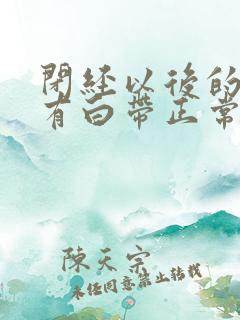 閉経以後的
有白帶正常
陳天宗
未任同意禁止转载